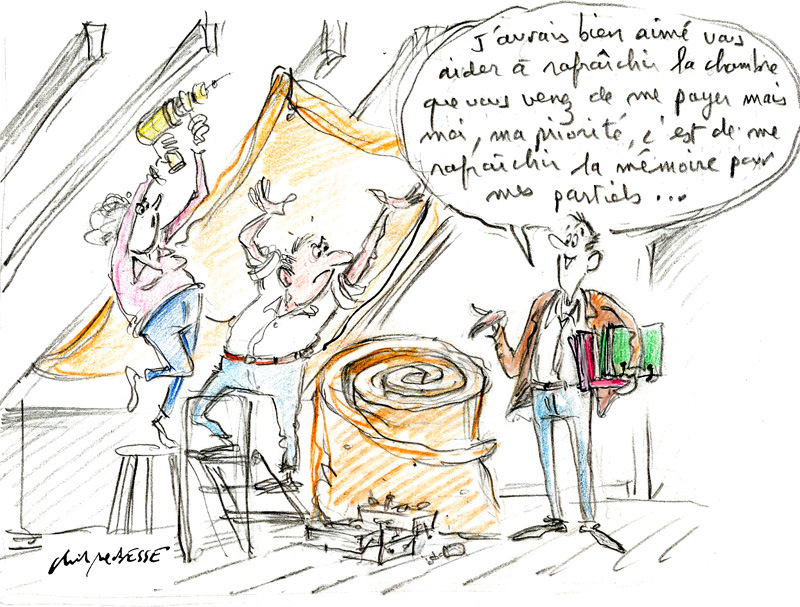 J'aurais bien aimé vous
aider à rafraîchir la chambre
que vous venez de me payer mais
moi, ma priorité, c'est de me
rafraîchir la mémoire pour
mes partiels...
BESSE